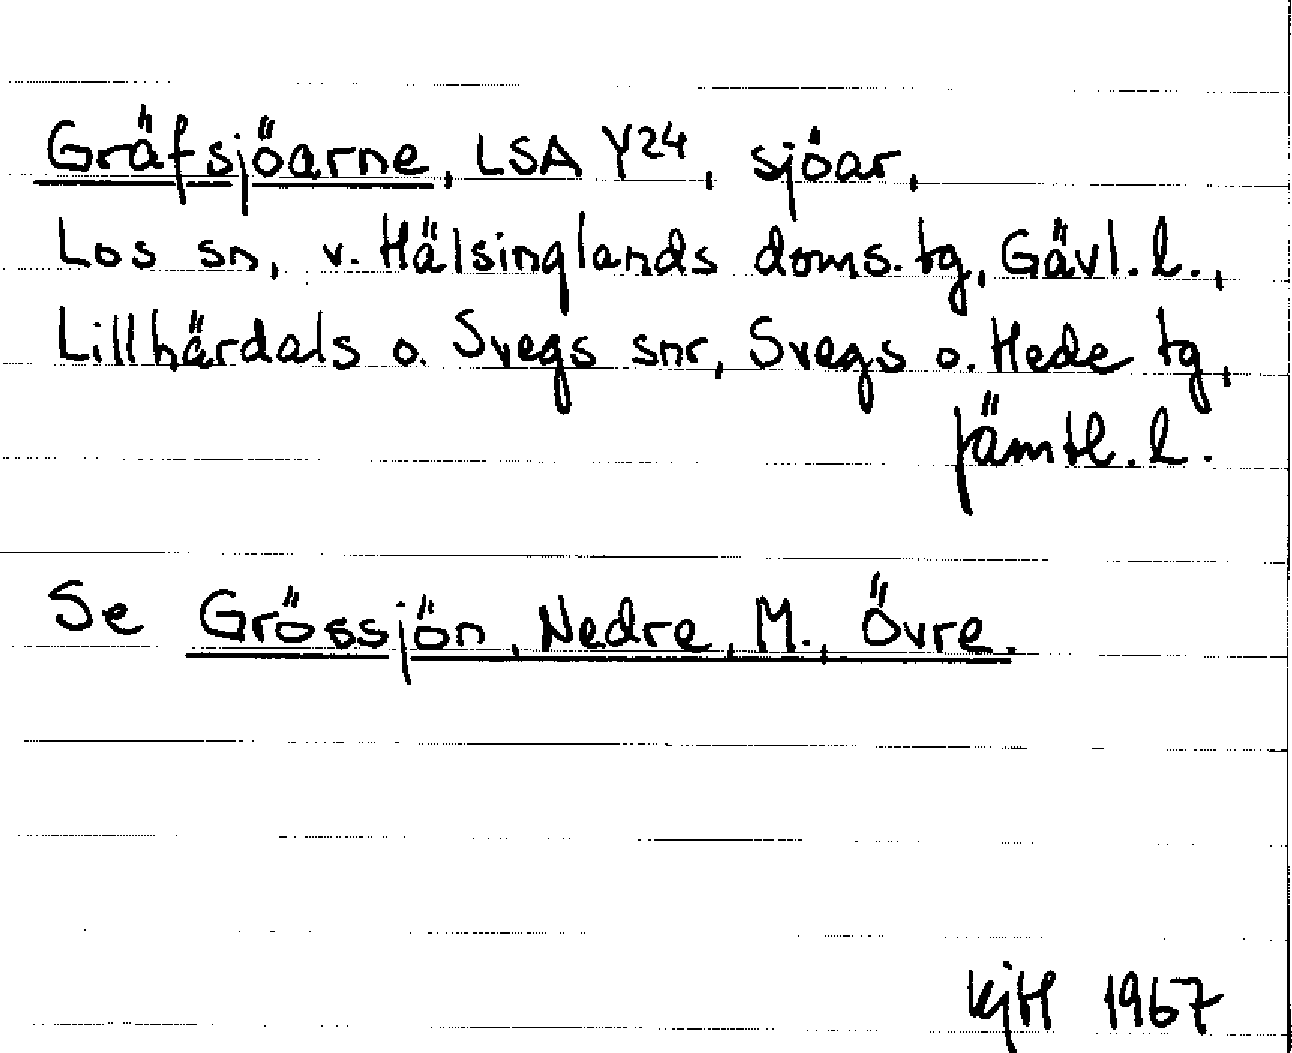 Gräfsjöarne, LSA Y24, sjöar,
Los sn, v. Hälsinglands doms. tg, Gävl. l.,
Lillhärdals o. Svegs snr, Svegs o. Hede tg,
Jämtl. l.
Se Grössjön, Nedre, M., Övre.
KjH 1967